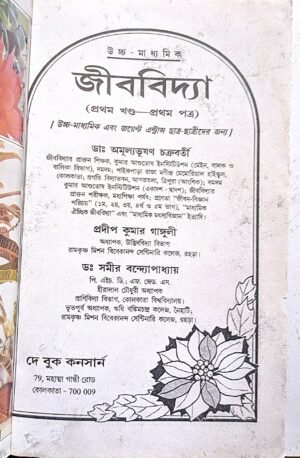 উচ্চ-মাধ্যমিক
জীববিদ্যা
(প্রথম খণ্ড—প্রথম পত্র)
[ উচ্চ-মাধ্যমিক এবং জয়েন্ট এন্ট্রান্স ছাত্র-ছাত্রীদের জন্য ]
ডাঃ অমূল্যভূষণ চক্রবর্তী
জীববিদ্যার প্রাক্তন শিক্ষক, কুমার আশুতোষ ইনস্টিটিউশন (মেইন, বালক ও
বালিকা বিভাগ), দমদম; পাইকপাড়া রাজা মণীন্দ্র মেমোরিয়াল হাইস্কুল,
কোলকাতা; প্রগতি বিদ্যাভবন, আগরতলা, ত্রিপুরা (আংশিক); দমদম
কুমার আশুতোষ ইনস্টিটিউশন (একাদশ - দ্বাদশ); জীববিদ্যার
প্রাক্তন পরীক্ষক, মধ্যশিক্ষা পর্ষদ; প্রণেতা "জীবন-বিজ্ঞান
পরিচয়" (১ম, ২য়, ৩য়, ৪র্থ ও ৫ম ভাগ), "মাধ্যমিক
ঐচ্ছিক জীববিদ্যা" এবং "মাধ্যমিক মৎস্যবিজ্ঞান" ইত্যাদি।
প্রদীপ কুমার গাঙ্গুলী
অধ্যাপক, উদ্ভিদবিদ্যা বিভাগ
রামকৃষ্ণ মিশন বিবেকানন্দ সেন্টিনারি কলেজ, রহড়া।
ডঃ সমীর বন্দ্যোপাধ্যায়
পি. এইচ. ডি.; এফ. জেড. এস.
হীরালাল চৌধুরী অধ্যাপক
প্রাণিবিদ্যা বিভাগ, কোলকাতা বিশ্ববিদ্যালয়।
ভূতপূর্ব অধ্যাপক, ঋষি বঙ্কিমচন্দ্র কলেজ, নৈহাটি;
রামকৃষ্ণ মিশন বিবেকানন্দ সেন্টিনারি কলেজ, রহড়া।
দে বুক কনসার্ন
79, মহাত্মা গান্ধী রোড
কোলকাতা - 700 009